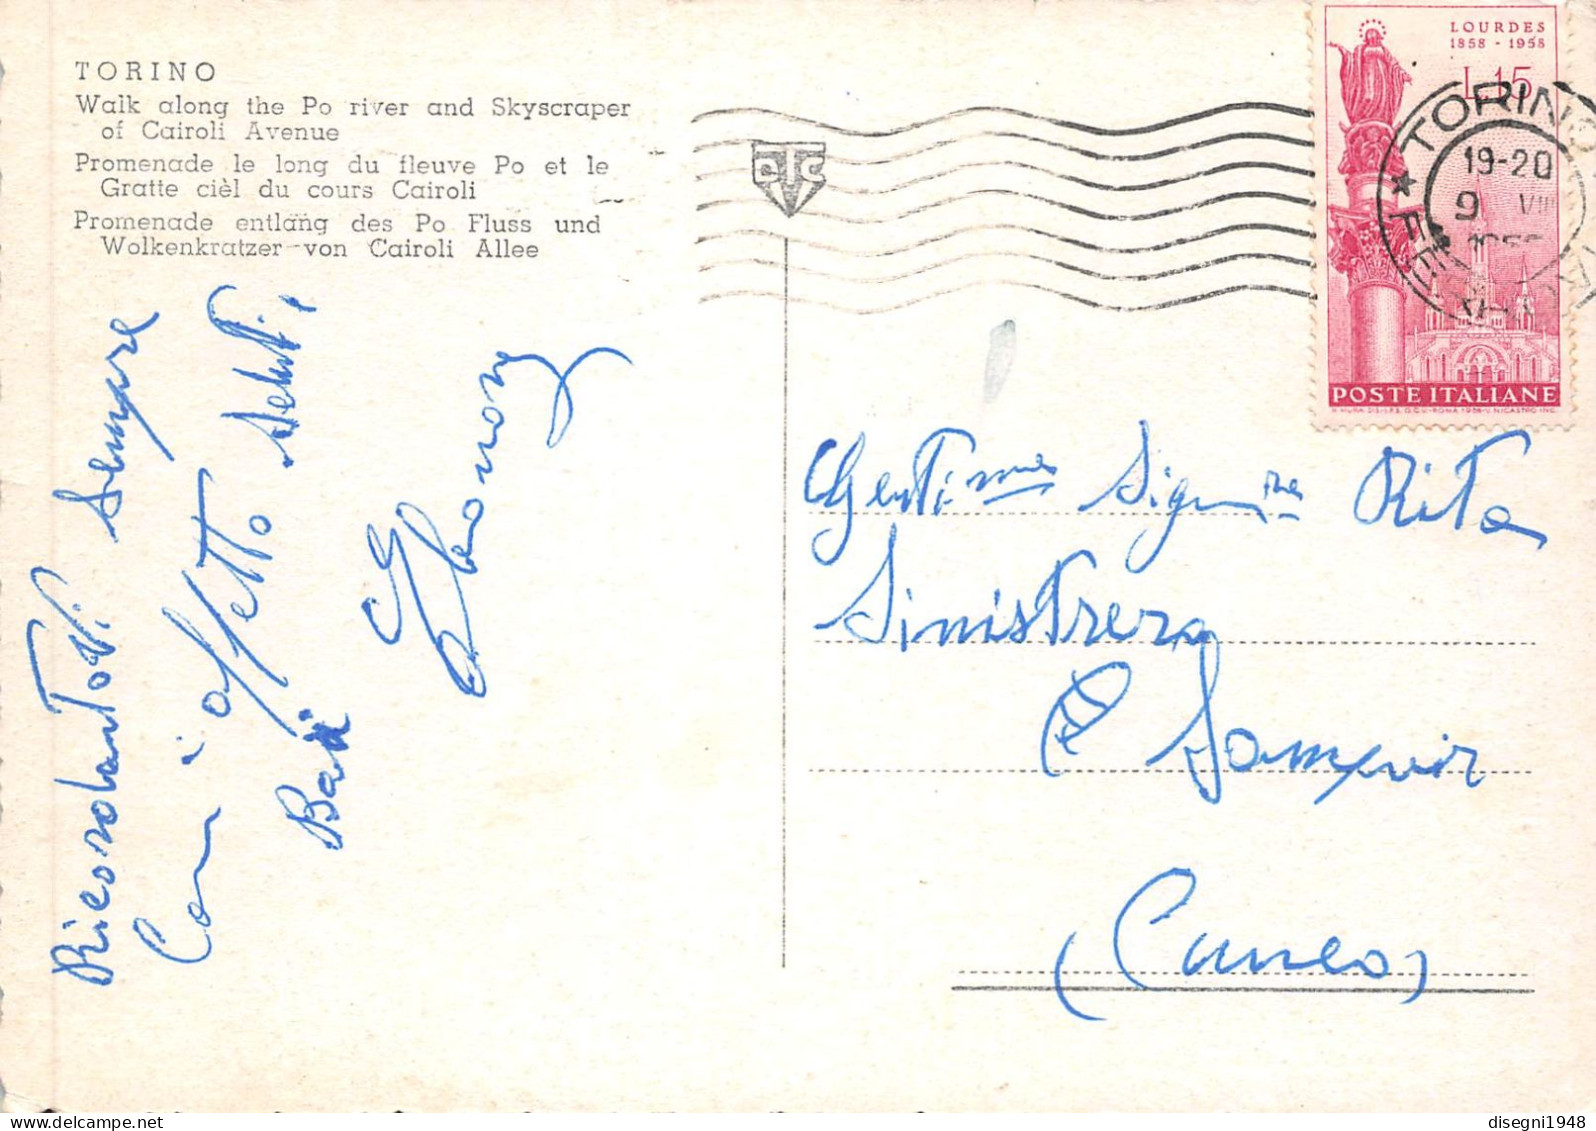 TORINO
Walk along the Po river and Skyscraper
of Cairoli Avenue
Promenade le long du fleuve Po et le
Gratte cièl du cours Cairoli
Promenade entläng des Po Fluss und
Wolkenkratzer von Cairoli Allee
LOURDES
1858 - 1958
L.15
POSTE ITALIANE
TORINO
19-20
9 VIII
Ricordantovi sempre
Con affetto saluti,
Baci
Eleonora
Gentil.me Sign.ne Rita
Sinistrero
(Cuneo)
disegni1948